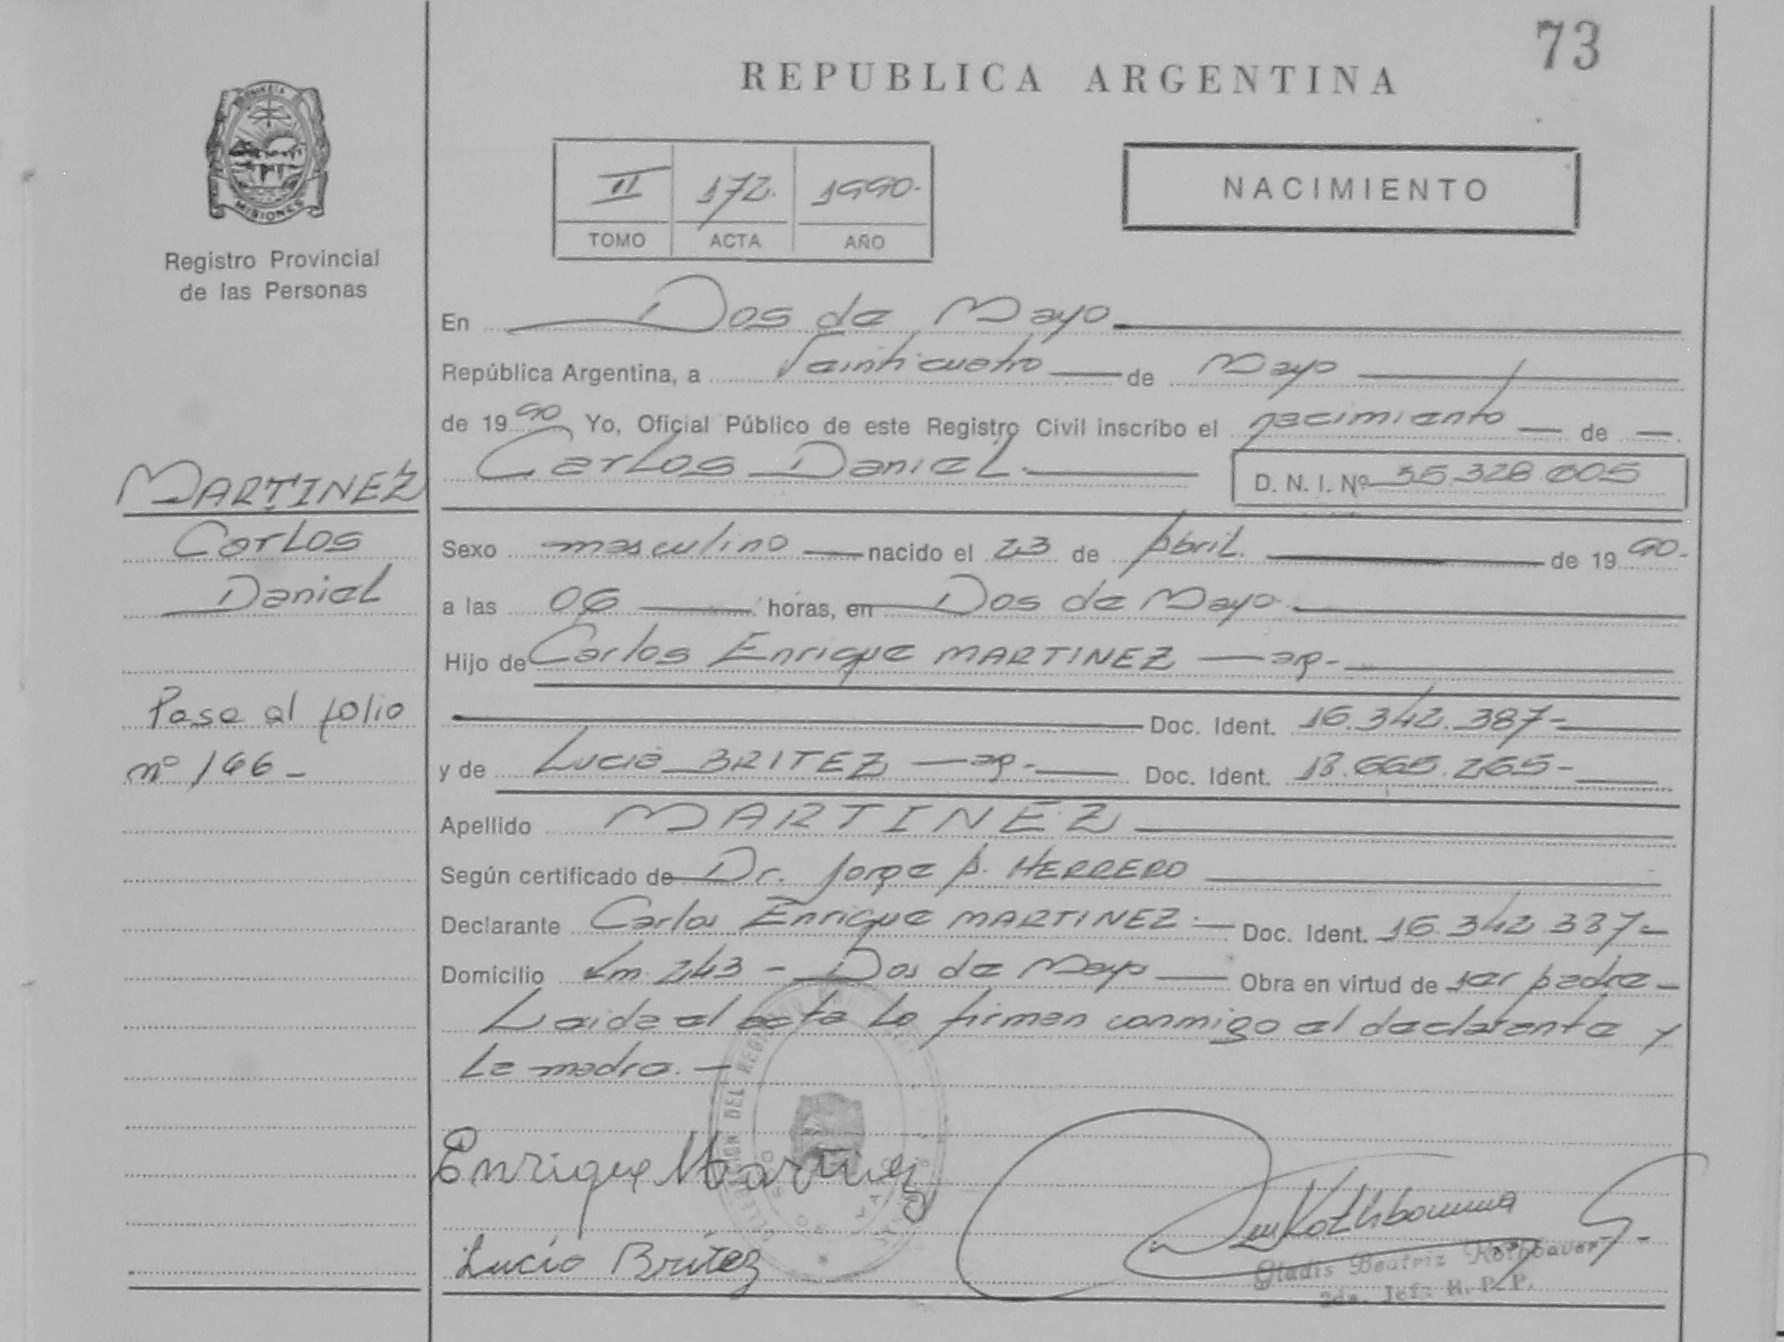 73
REPUBLICA ARGENTINA
MISIONES
Registro Provincial
de las Personas
II 172. 1990.
TOMO ACTA AÑO
NACIMIENTO
En Dos de Mayo
República Argentina, a Veinticuatro de Mayo
de 1990 Yo, Oficial Público de este Registro Civil inscribo el nacimiento de
Carlos Daniel. D. N. I. Nº 35.328.005
MARTINEZ
Carlos
Daniel
Sexo masculino nacido el 23 de Abril. de 1990.
a las 06 horas, en Dos de Mayo.
Hijo de Carlos Enrique MARTINEZ ap.
Doc. Ident. 16.342.387-
Pase al folio
nº 166-
y de Lucia BRITEZ ap. Doc. Ident. 18.665.265-
Apellido MARTINEZ
Según certificado de Dr. Jorge A. HERRERO
Declarante Carlos Enrique MARTINEZ Doc. Ident. 16.342.387-
Domicilio Km. 243 - Dos de Mayo Obra en virtud de ser padre-
Leida el acta la firman conmigo el declarante y
la madre.-
Enrique Martinez
Lucia Britez
Gladis Beatriz Rothbauer
2da. Jefa R. P. P.